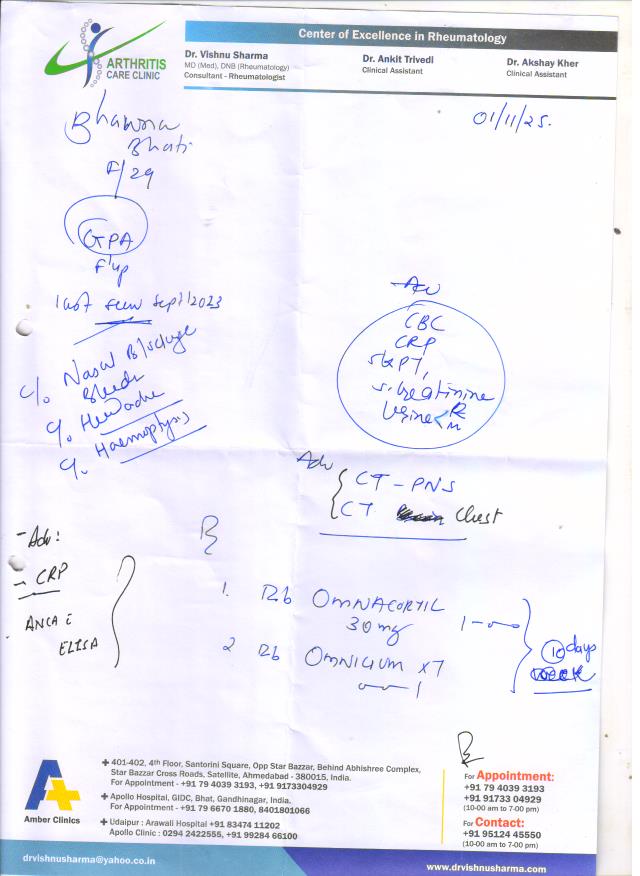 Center of Excellence in Rheumatology
ARTHRITIS
CARE CLINIC
Dr. Vishnu Sharma
MD (Med), DNB (Rheumatology)
Consultant - Rheumatologist
Dr. Ankit Trivedi
Clinical Assistant
Dr. Akshay Kher
Clinical Assistant
01/11/25.
Bhawna
Bhati
F/29
GPA
F'up
last seen Sept/2023
c/o Nasal
c/o Headache
c/o Haemoptysis
Adv
CBC
CRP
SGPT,
S. Creatinine
Urine R
M
Adv
CT - PNS
CT Chest
- Adv:
- CRP
ANCA
ELISA
Rx
1. Tab OMNACORTIL
30 mg
2 Tab OMNICIUM XT
10 days
Amber Clinics
401-402, 4th Floor, Santorini Square, Opp Star Bazzar, Behind Abhishree Complex,
Star Bazzar Cross Roads, Satellite, Ahmedabad - 380015, India.
For Appointment - +91 79 4039 3193, +91 9173304929
Apollo Hospital, GIDC, Bhat, Gandhinagar, India.
For Appointment - +91 79 6670 1880, 8401801066
Udaipur : Arawali Hospital +91 83474 11202
Apollo Clinic : 0294 2422555, +91 99284 66100
For Appointment:
+91 79 4039 3193
+91 91733 04929
(10-00 am to 7-00 pm)
For Contact:
+91 95124 45550
(10-00 am to 7-00 pm)
drvishnusharma@yahoo.co.in
www.drvishnusharma.com